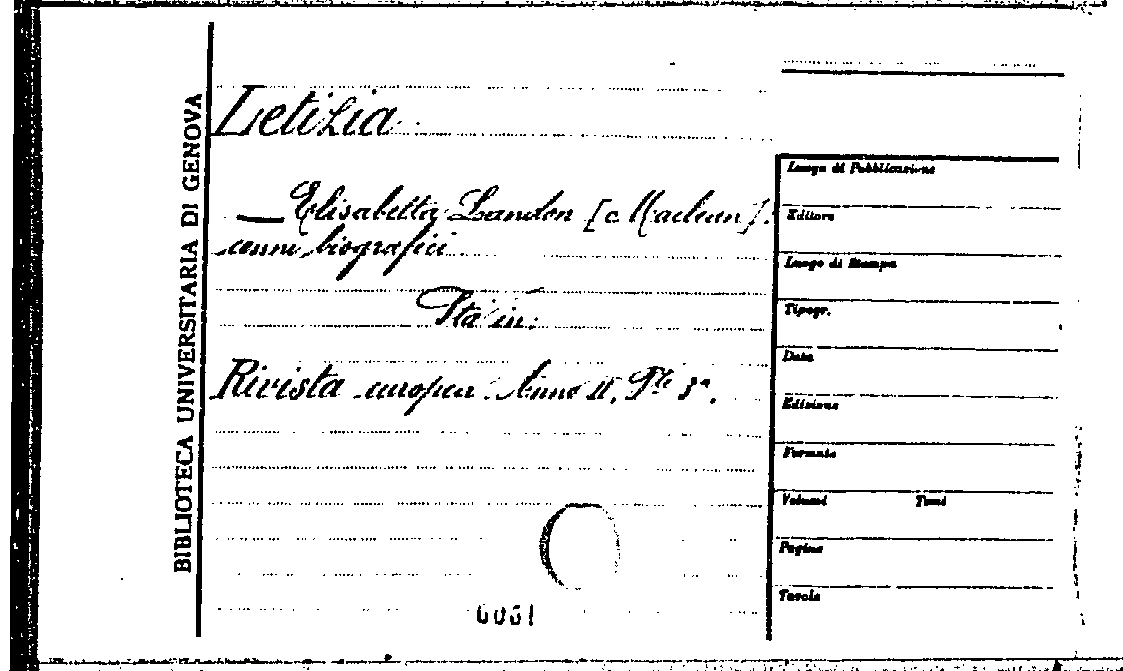 BIBLIOTECA UNIVERSITARIA DI GENOVA
Letizia
— Elisabetta Landon [e Maclean].
cenni biografici
Sta in:
Rivista europea. Anno II, Pte 3a.
0061
Luogo di Pubblicazione
Editore
Luogo di Stampa
Tipogr.
Data
Edizione
Formato
Volumi Tomi
Pagine
Tavole